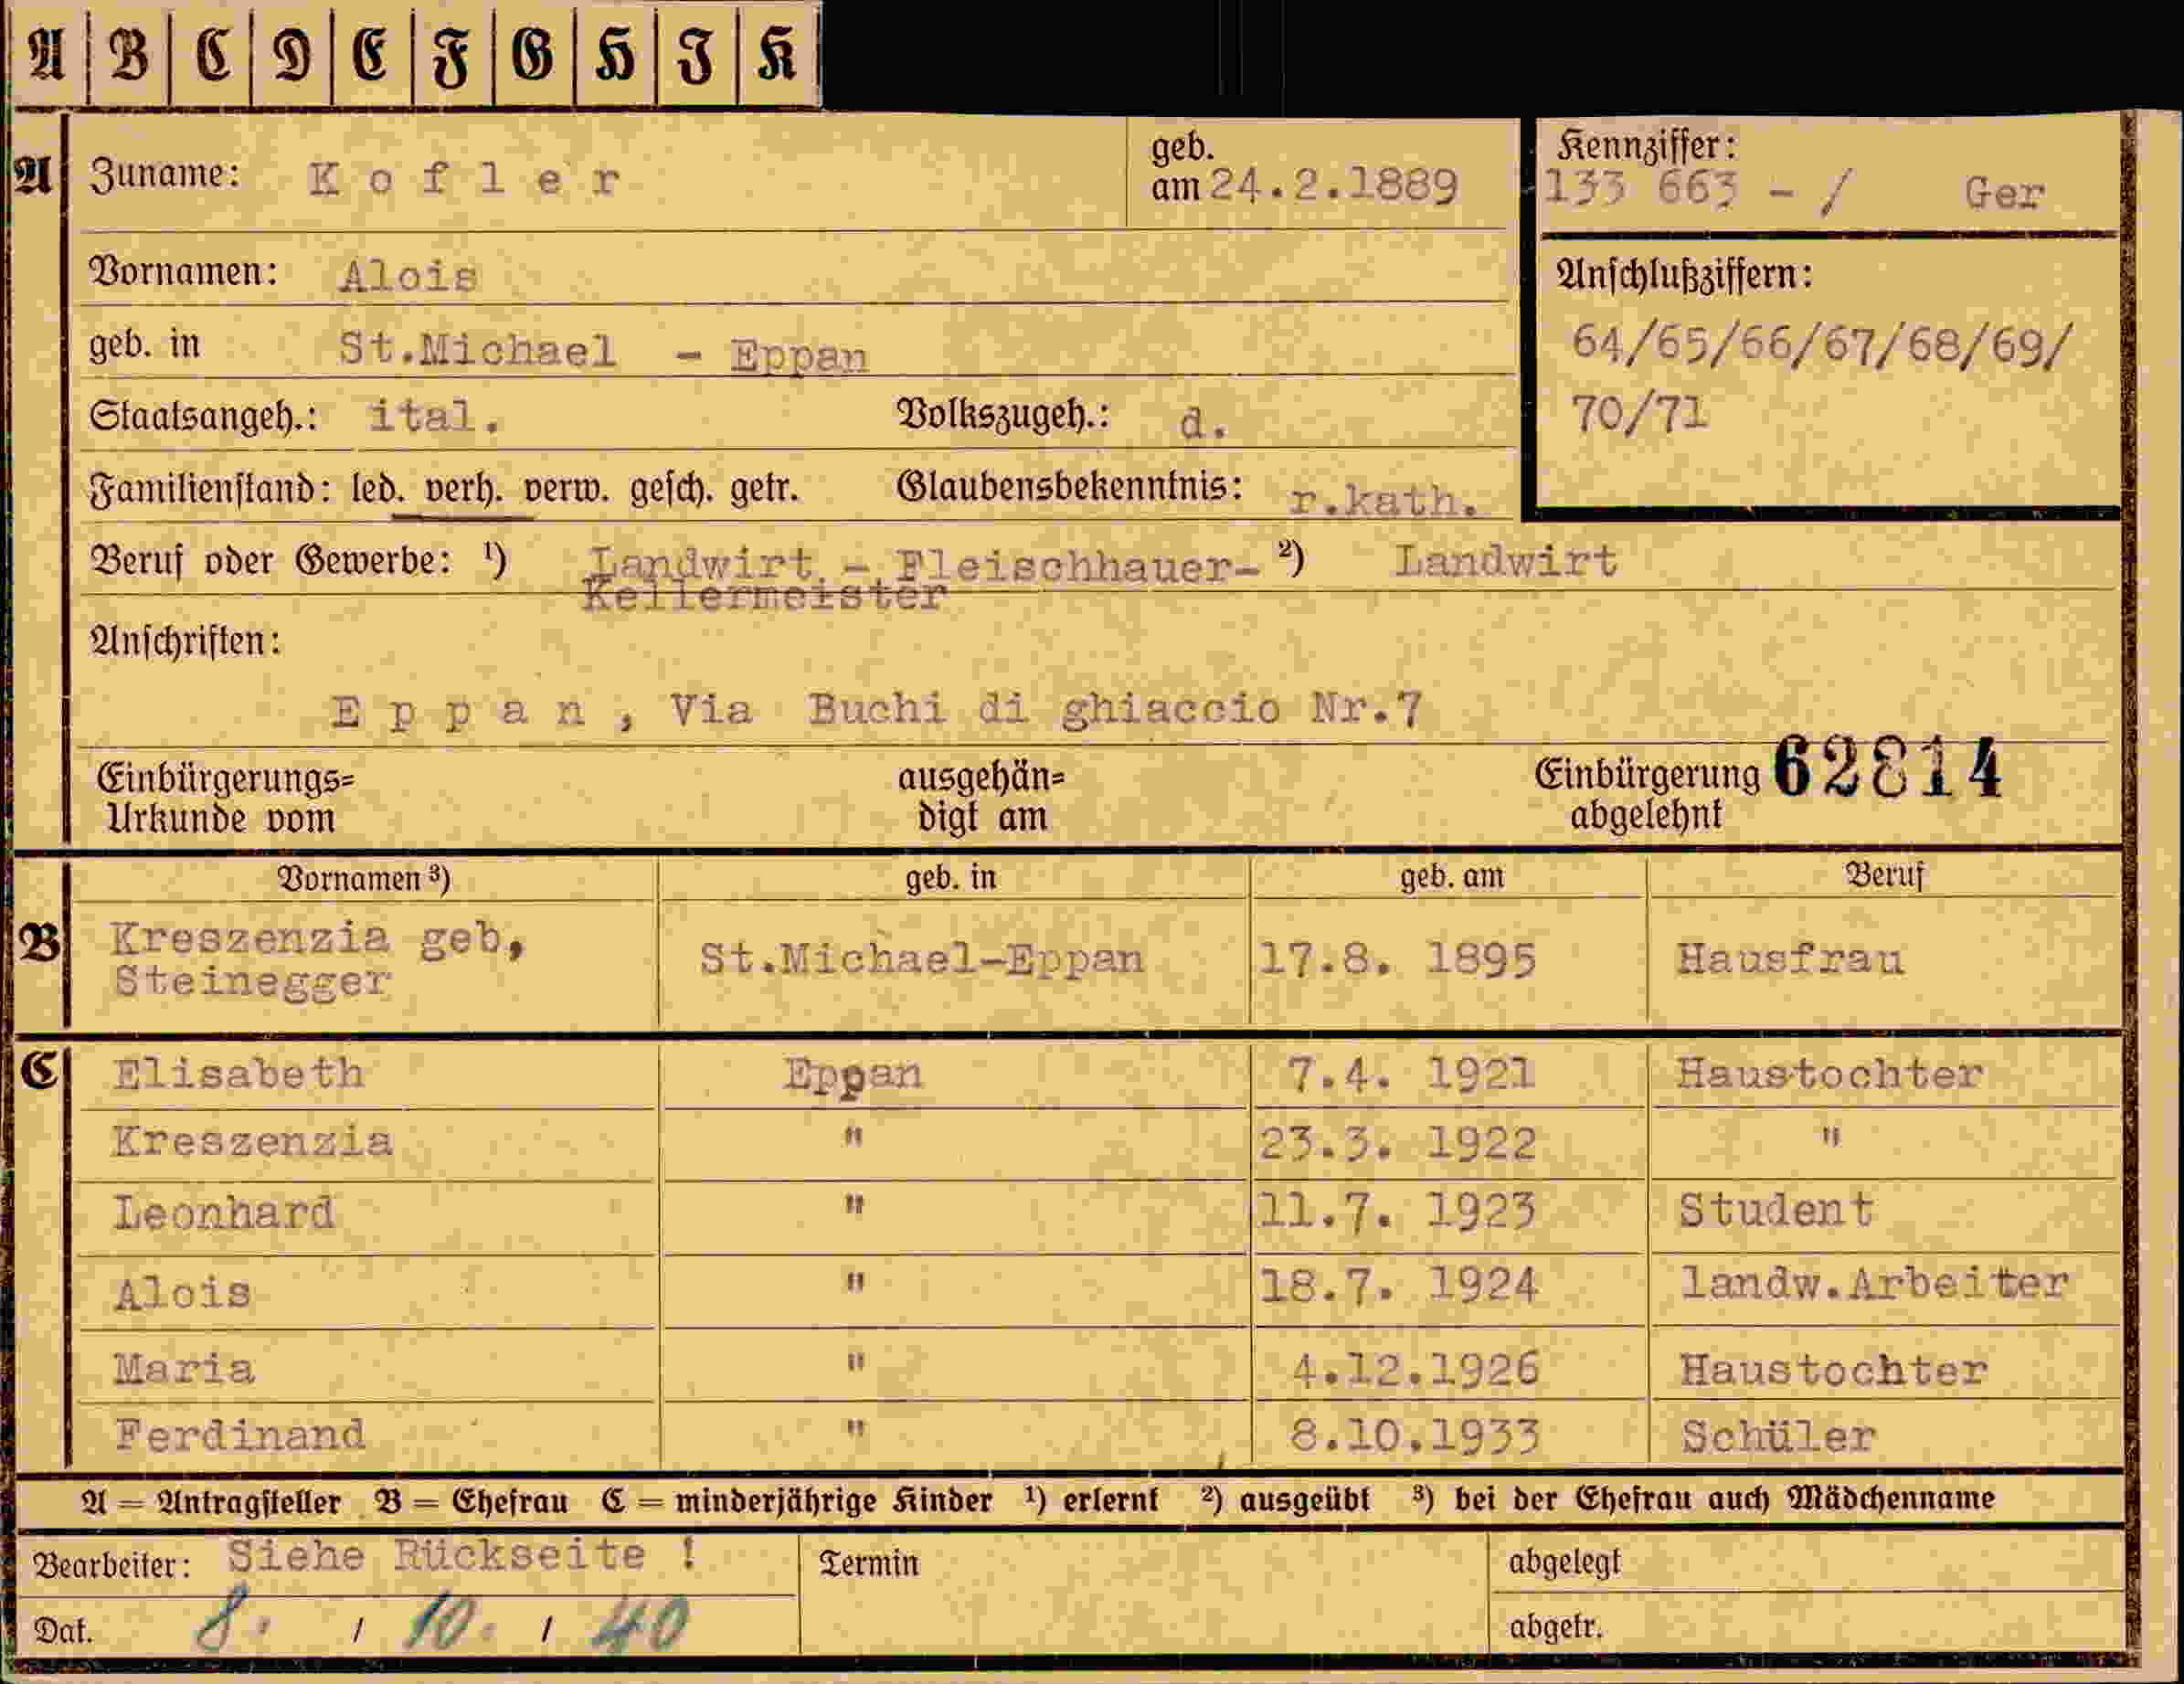 A B C D E F G H I K
A Zuname: Kofler geb. am 24.2.1889 Kennziffer: 133 663 - / Ger
Vornamen: Alois Anschlußziffern:
geb. in St.Michael - Eppan 64/65/66/67/68/69/
Staatsangeh.: ital. Volkszugeh.: d. 70/71
Familienstand: led. verh. verw. gesch. getr. Glaubensbekenntnis: r.kath.
Beruf oder Gewerbe: ¹) Landwirt - Fleischhauer- ²) Landwirt
Kellermeister
Anschriften:
Eppan, Via Buchi di ghiaccio Nr.7
Einbürgerungs= ausgehän= Einbürgerung 62814
Urkunde vom digt am abgelehnt
Vornamen ³) geb. in geb. am Beruf
B Kreszenzia geb, St.Michael-Eppan 17.8. 1895 Hausfrau
Steinegger
C Elisabeth Eppan 7.4. 1921 Haustochter
Kreszenzia " 23.3. 1922 "
Leonhard " 11.7. 1923 Student
Alois " 18.7. 1924 landw.Arbeiter
Maria " 4.12.1926 Haustochter
Ferdinand " 8.10.1933 Schüler
A = Antragsteller B = Ehefrau C = minderjährige Kinder ¹) erlernt ²) ausgeübt ³) bei der Ehefrau auch Mädchenname
Bearbeiter: Siehe Rückseite ! Termin abgelegt
Dat. 8. / 10. / 40 abgetr.